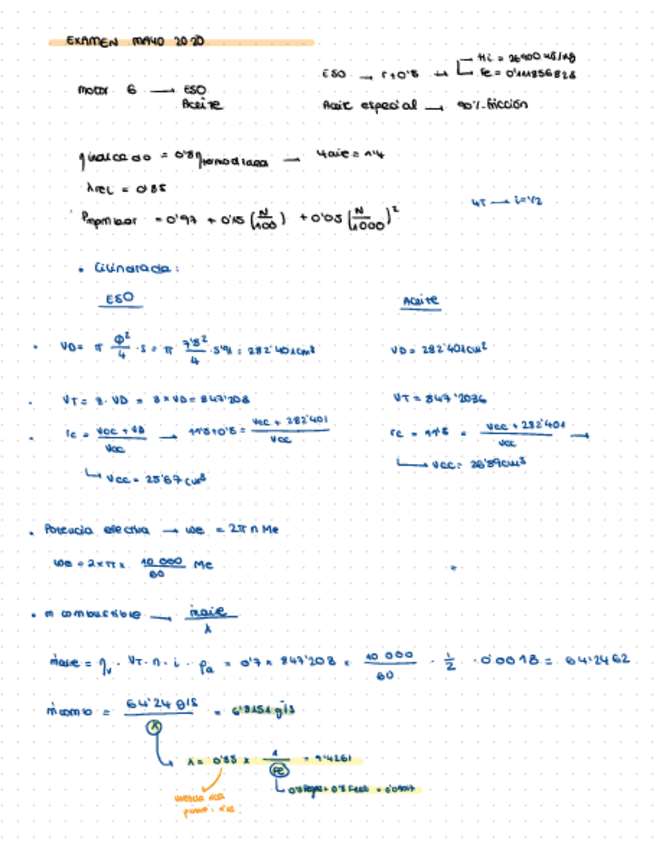 EXAMEN MAYO 2020
Motor 6 → ESO
Aceite
ESO → r+0'5 → Hi = 26900 kJ/kg
Fe = 0'111856828
Aceite especial → 90% fricción
ηindicado = 0'8 ηtermodinámica → γaire = 1'4
λrel = 0'85
Pmpmbear = 0'97 + 0'15 (N/1000) + 0'05 (N/1000)²
4T → i=1/2
• Cilindrada:
ESO
Aceite
• VD = π Φ²/4 · S = π 7'8²/4 · 5'91 = 282'401 cm³
VD = 282'401 cm³
• VT = 3 · VD = 3 × VD = 847'203
VT = 847'2036
• rc = Vcc + VD / Vcc → 11'5+0'5 = Vcc + 282'401 / Vcc
rc = 11'5 = Vcc + 282'401 / Vcc →
↳ Vcc = 25'67 cm³
↳ Vcc = 26'89 cm³
• Potencia efectiva → We = 2π n Me
We = 2×π× 10 000/60 Me
• m combustible → ṁaire / λ
ṁaire = ηv · VT · n · i · ρa = 0'7 × 847'203 × 10 000/60 · 1/2 · 0'0013 = 64'2462
ṁcomb = 64'24 g/s / λ = 6'8151 g/s
↳ λ = 0'85 × 1/Fe = 9'4261
mezcla rica